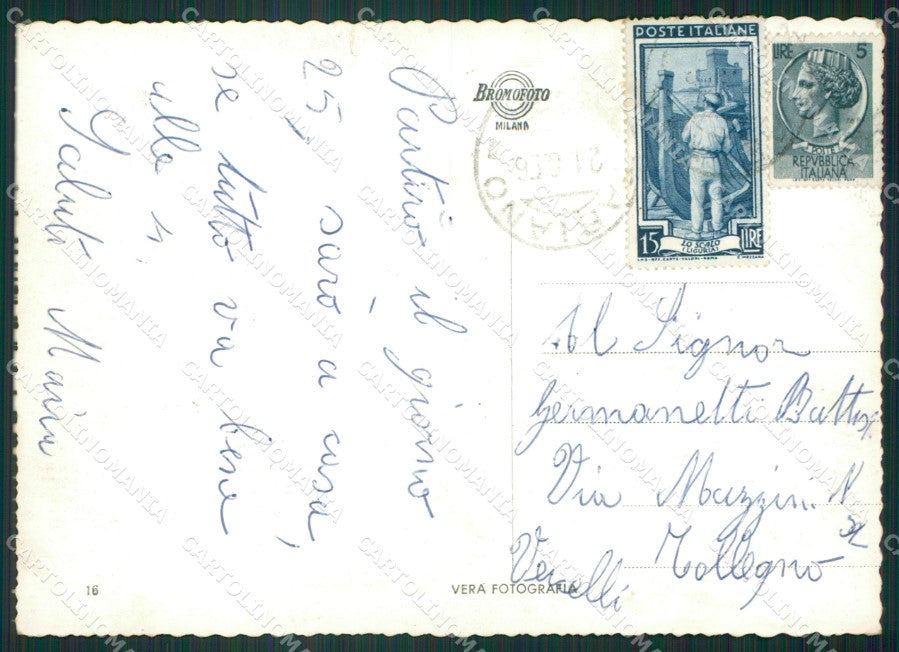 Partirò il giorno
25, sarò a casa,
se tutto va bene
alla
Saluti Maria
BROMOFOTO
MILANO
POSTE ITALIANE
15 LIRE
LO SCALO
(LIGURIA)
LIRE 5
POSTE
REPVBBLICA
ITALIANA
Al Signor
Germanetti
Via Mazzini N
Tollegno
Vercelli
16
VERA FOTOGRAFIA
CARTOLINOMANIA